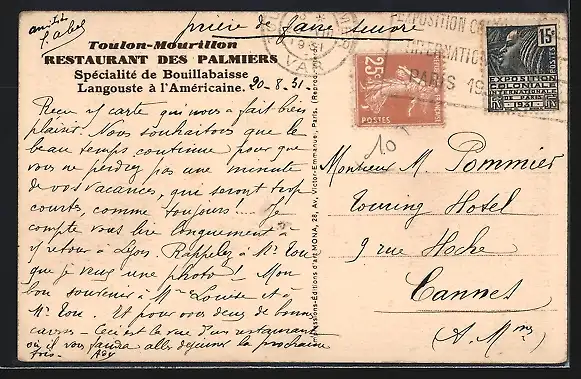 prière de faire suivre
amitiés
Toulon-Mourillon
RESTAURANT DES PALMIERS
Spécialité de Bouillabaisse
Langouste à l'Américaine.
20-8-31.
Reçu v/ carte qui nous a fait bien
plaisir. Nous souhaitons que le
beau temps continue pour que
vous ne perdiez pas une minute
de vos vacances, qui seront trop
courtes, comme toujours!... Je
compte vous lire longuement à
v/ retour à Lyon. Rappelez à
que je veux une photo! Mon
bon souvenir à Louise et à
Et pour vous deux de bonnes
Ceci est la vue d'un restaurant
où il vous faudra aller déjeuner la prochaine
fois.
Impressions-Éditions d'art MONA, 28, Av. Victor-Emmanuel, Paris. (Reprod.
VAR
EXPOSITION
INTERNATIONALE
PARIS 19
25c
POSTES
15c
EXPOSITION
COLONIALE
INTERNATIONALE
PARIS
1931
10
Monsieur M. Pommier
Touring Hotel
9 rue Hoche
Cannes
(A. Mmes)